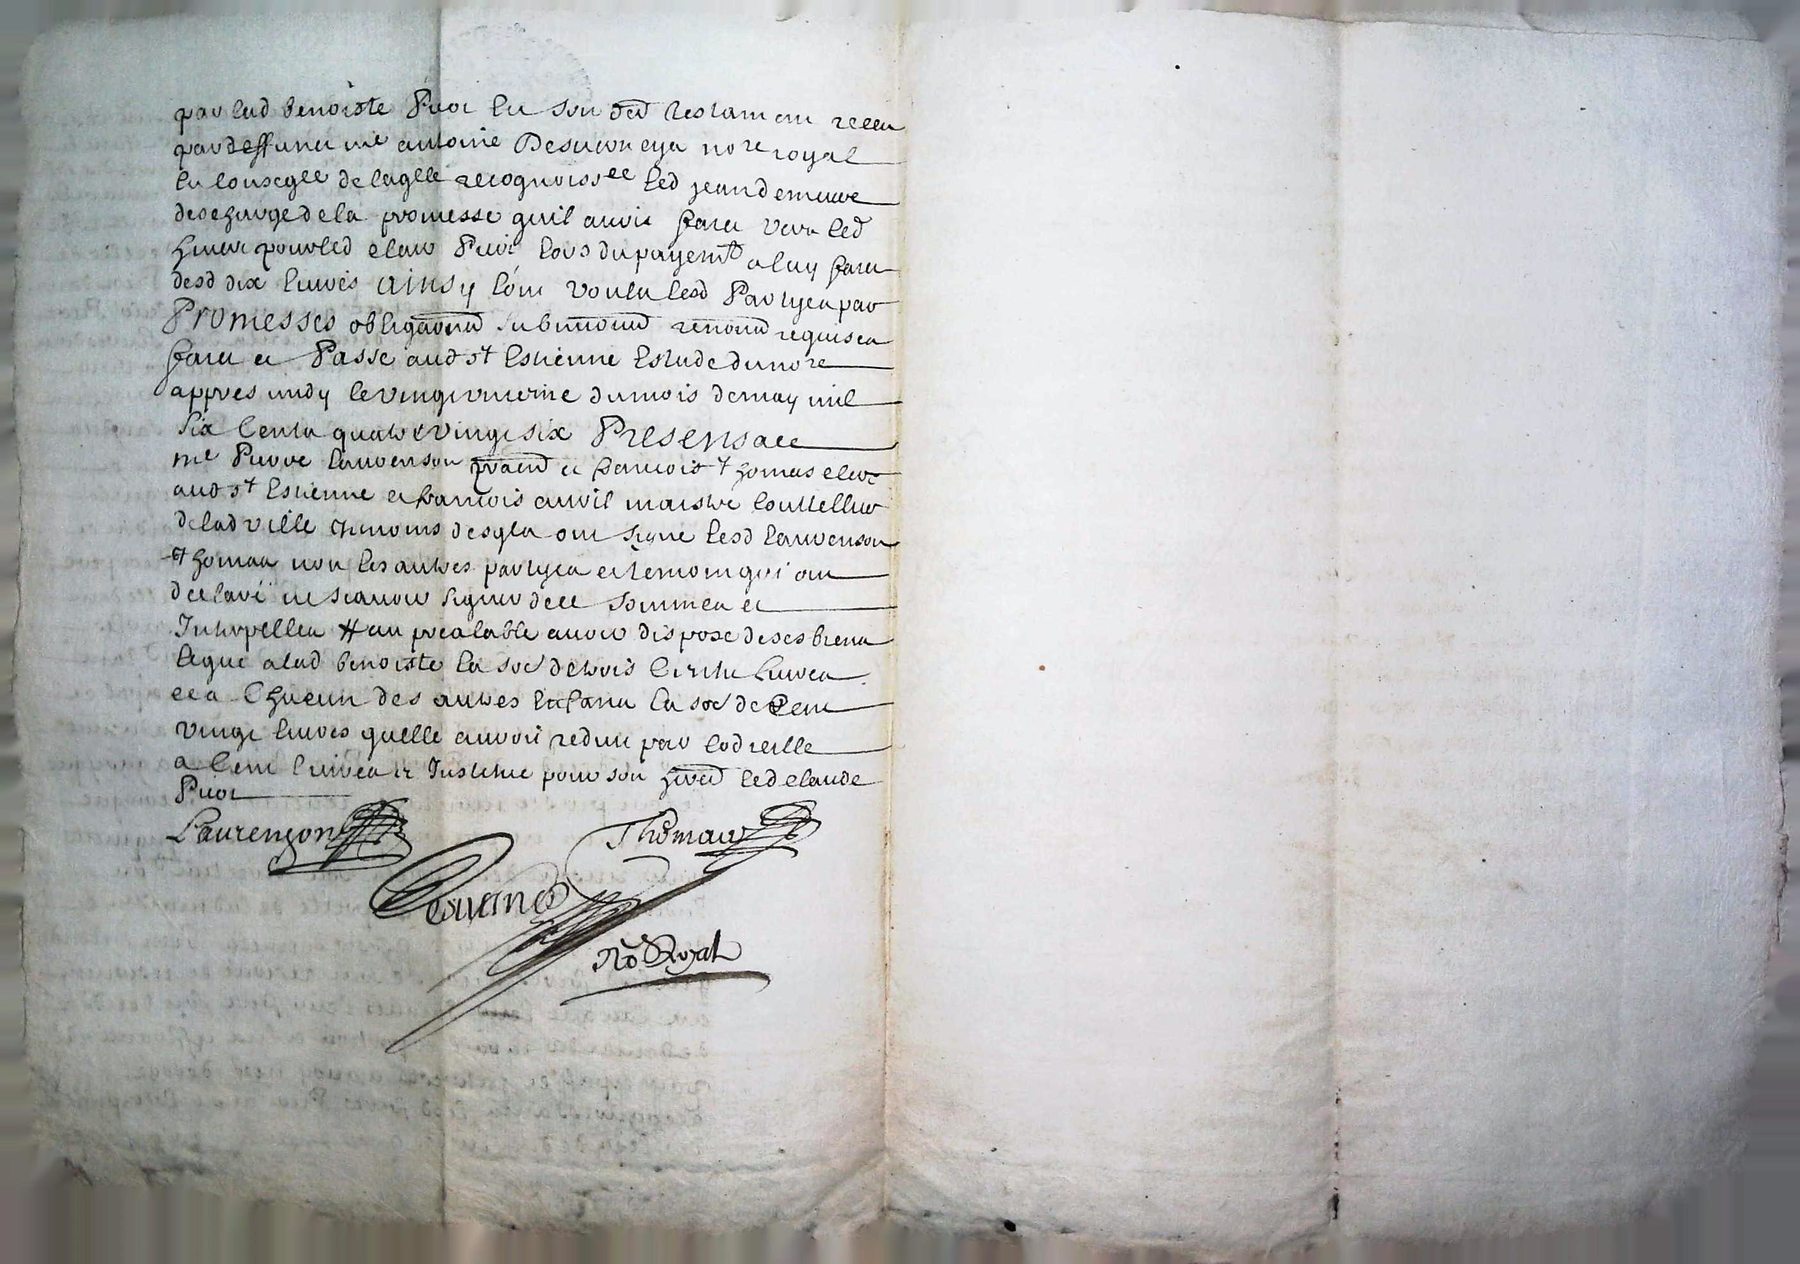 par lad benoiste Piot en son dud testament receu
par deffunct me antoine Desverneys nore royal
en conseqce de laqlle recognoissce led jean demeure
descharge de la promesse quil avoit faict vers led
pour led claude Piot lors du payemt a luy faict
desd dix livres ainsy l'ont voulu lesd Partyes par
Promesses obligaons submissions renons requises
faict et Passe aud st Estienne Estude du nore
appres midy le vingt uniesme du mois de may mil
six cents quatre vingt six Presens a ce
me Pierre Laurenson praticien et francois thomas clerc
aud st Estienne et francois auvil maistre couttellier
de lad ville tesmoins desqls ont signe lesd Laurenson
thomas non les autres partyes et temoin qui ont
declare ne scavoir signer de ce sommes et
Interpelles # au prealable avoir dispose de ses biens
legue a lad benoiste la soe de trois cents livres
et a Chacun des autres Enfans la soe de Cent
vingt livres quelle auroit reduit par codicille
a Cent livres et Institue pour son led claude
Piot
Laurençon Thomas
No Royal